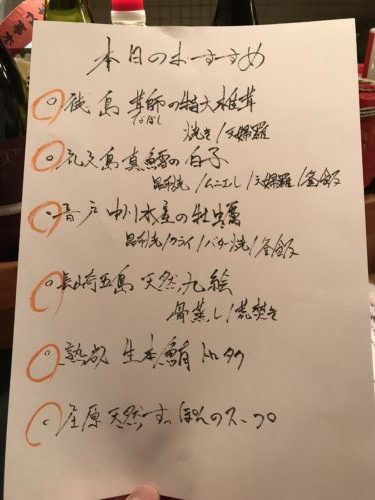 本日のおすすめ
徳島 茸師の特大椎茸
たけし
焼き/天婦羅
礼文島 真鱈の白子
昆布焼/ムニエル/天婦羅/釜飯
音戸 中川水産の牡蠣
昆布焼/フライ/バター焼/釜飯
長崎五島 天然九絵
骨蒸し/荒焚き
熟成 生本鮪 トロタク
庄原 天然すっぽんのスープ